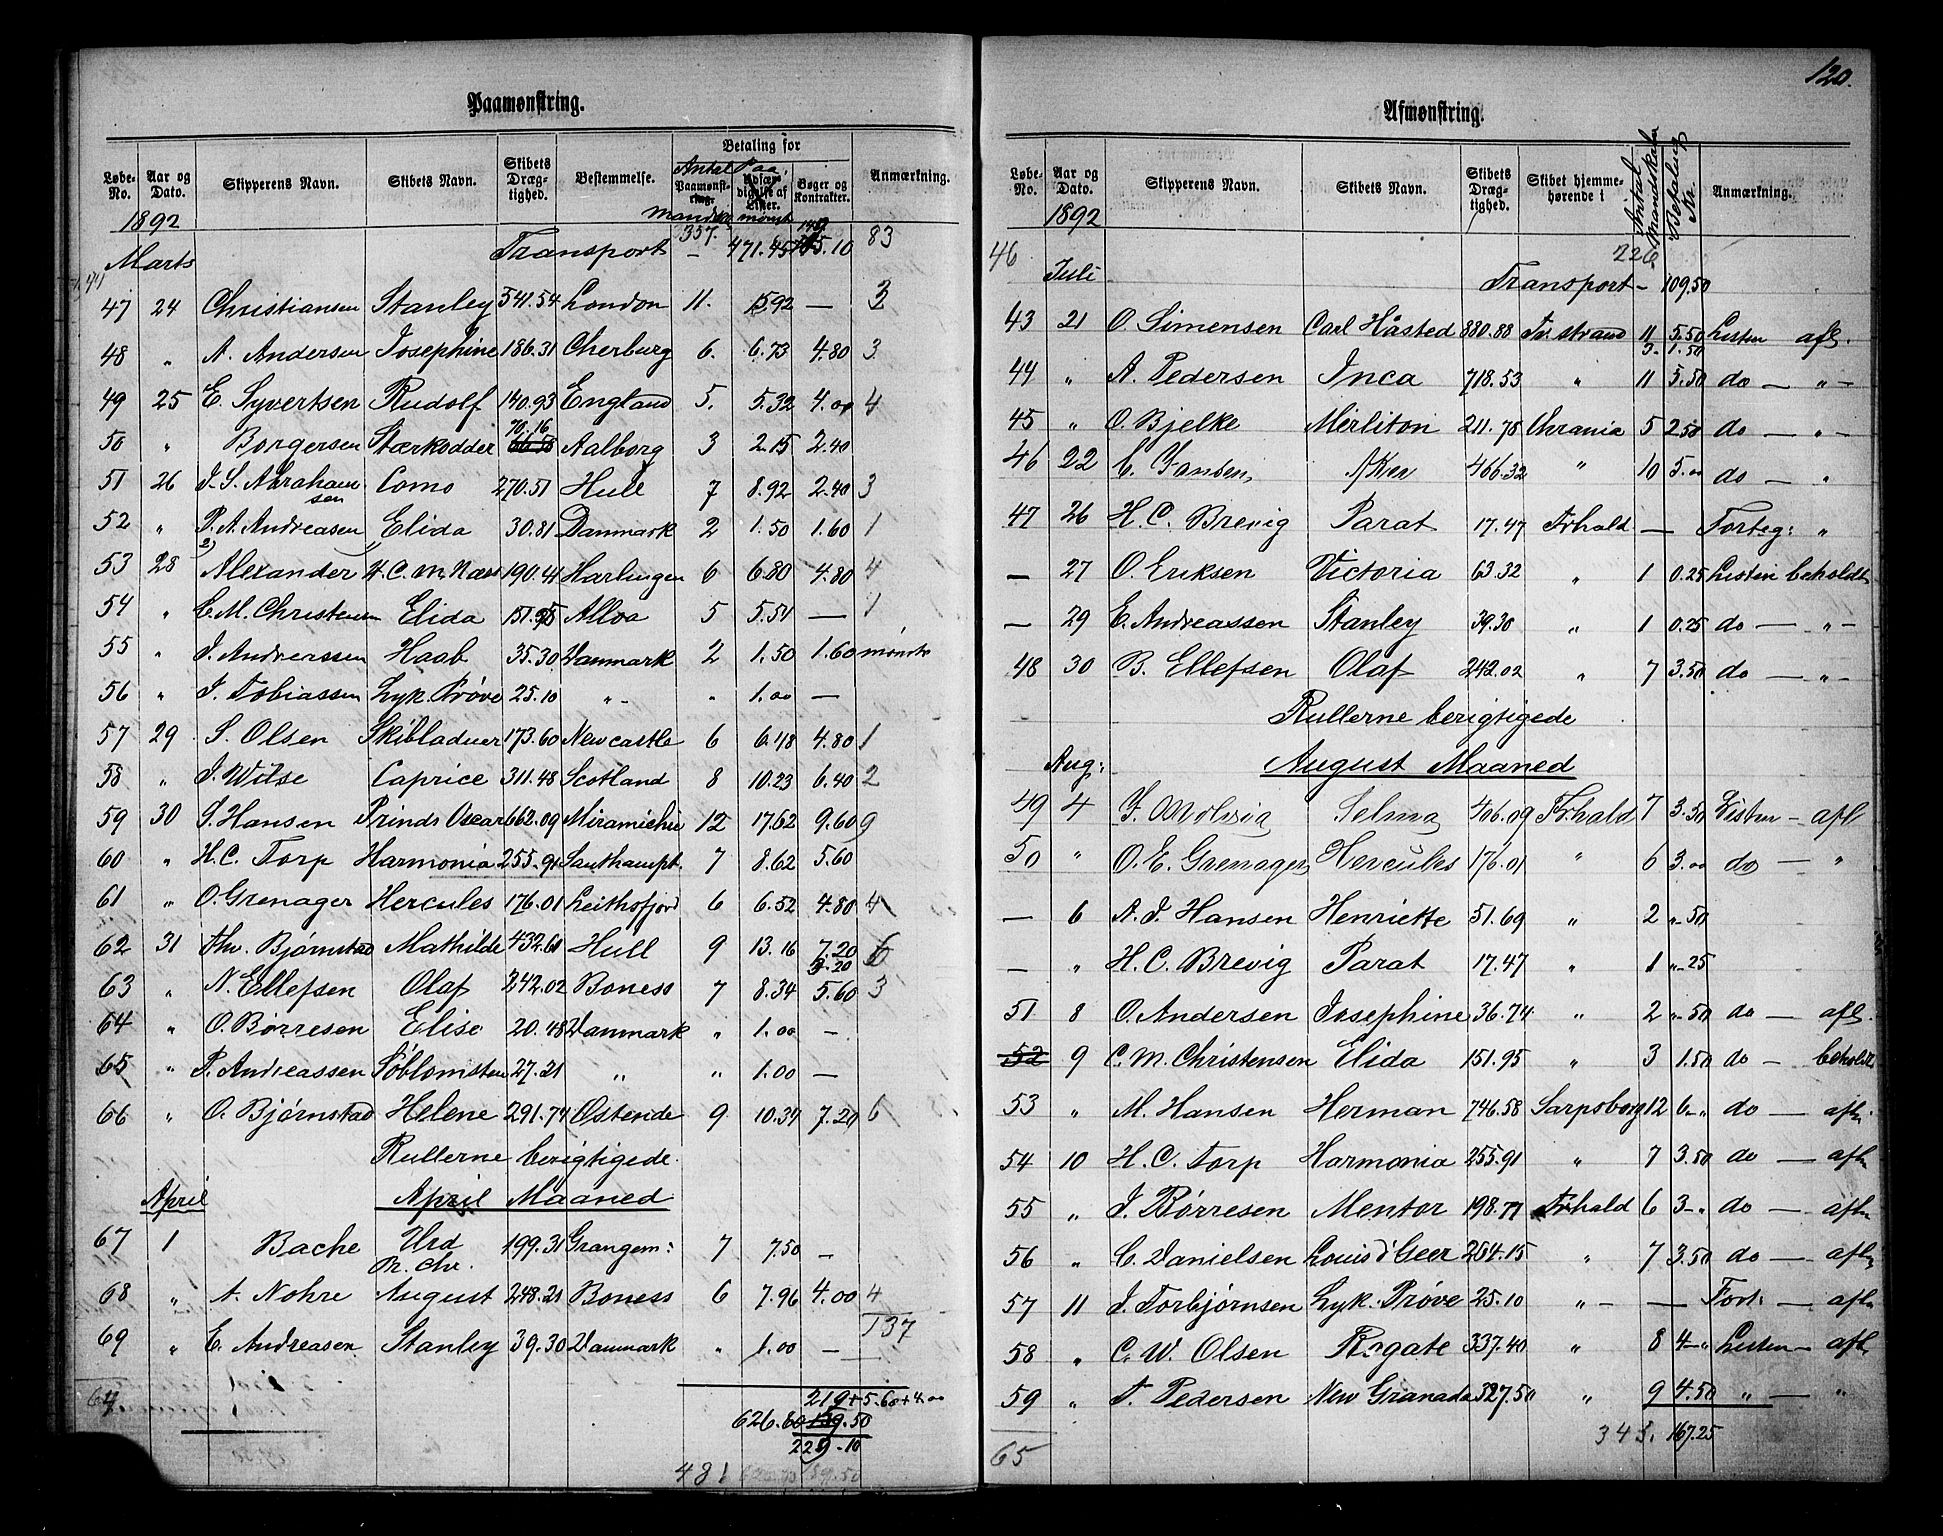 Paamønstring.
Løbe-No. | Aar og Dato. | Skipperens Navn. | Skibets Navn. | Skibets Dræg-tighed. | Bestemmelse. | Betaling for | Antal Paamønst-ring. mandsk | Paa. Udfær-digelse af Lister. mønst | Bøger og Kontrakter. | Anmærkning.
1892
Marts Transport 357. — 471.45 5.10 83
47 24 Christiansen Stanley 541.54 London 11. 15.92 — 3
48 " A. Andersen Josephine 186.31 Cherburg 6. 6.73 4.80 3
49 25 E. Syvertsen Rudolf 140.93 England 5. 5.32 4.00 4
50 " Borgersen Stærkodder 70.16 Aalborg 3 2.15 2.40
51 26 J. S. Abrahamsen Como 270.51 Hull 7 8.92 2.40 3
52 " P. A. Andreasen Elida 30.81 Danmark 2 1.50 1.60 1
53 28 Alexander H. C. M. Næss 190.41 Harlingen 6 6.80 4.80 4
54 " C. M. Christensen Elida 151.95 Alloa 5 5.51 — 1
55 " J. Andreassen Haab 35.30 Danmark 2 1.50 1.60 mønstr
56 " J. Tobiassen Lyk. Prøve 25.10 " - " 1.00 —
57 29 S. Olsen Skibladner 173.60 Newcastle 6 6.48 4.80 1
58 " J. Wilse Caprice 311.48 Scotland 8 10.23 6.40 2
59 30 S. Hansen Prinds Oscar 662.09 Miramichie 12 17.62 9.60 9
60 " H. C. Torp Harmonia 255.91 Southampt. 7 8.62 5.60
61 " O. Grenager Hercules 176.01 Leithsfjord 6 6.52 4.80 4
62 31 Thv. Bjørnstad Mathilde 432.61 Hull 9 13.16 7.20 6
63 " N. Ellefsen Olaf 242.02 Boness 7 8.34 5.60 3
64 " O. Børresen Elise 20.48 Danmark " 1.00 —
65 " P. Andreassen Søblomsten 27.21 " " 1.00 —
66 " O. Bjørnstad Helene 291.74 Ostende 9 10.34 7.20 6
Rullerne berigtigede.
April April Maaned
67 1 Bache Urd 199.31 Grangem: 7 7.50 —
68 " A. Nohre Pr. Chr. August 248.21 Boness 6 7.96 4.00 4
69 " E. Andreasen Stanley 39.30 Danmark " 1.00 — 137
219+5.60+4.00
626.80 159.50
229-10
481
120.
Afmønstring.
Løbe-No. | Aar og Dato. | Skipperens Navn. | Skibets Navn. | Skibets Dræg-tighed. | Skibet hjemme-hørende i | Antal Mandskaber | Betaling Kr | Anmærkning.
1892
46 226
Juli Transport — 109.50
43 21 O. Simensen Carl Håsted 880.88 Fr. strand 11 5.50 Listen afl.
3. 1.50
44 " A. Pedersen Inca 718.53 " 11 5.50 do — " —
45 " O. Bjelke Merliton 211.75 Chrania 5 2.50 do — " —
46 22 C. Jansen Aker 466.32 " 10 5.00 do — "
47 26 H. C. Brevig Parat 17.47 Frhald — Forteg: "
— 27 O. Eriksen Victoria 63.32 " 1 0.25 Listen beholdt
— 29 E. Andreassen Stanley 39.30 " 1 0.25 do — " —
48 30 B. Ellefsen Olaf 242.02 " 7 3.50 do — " —
Rullerne berigtigede
Aug: August Maaned
49 4 Selma 406.09 Frhald 7 3.50 Listen — afl
50 " O. E. Grenager Hercules 176.01 " 6 3.00 do — "
— 6 A. J. Hansen Henriette 51.69 " 2 ".50
— " H. C. Brevig Parat 17.47 " 1 "-25
51 8 O. Andersen Josephine 36.74 " 2 ".50 do — afl.
52 9 C. M. Christensen Elida 151.95 " 3 1.50 do — beholdt
53 " M. Hansen Herman 746.58 Sarpsborg 12 6-" do — afl.
54 10 H. C. Torp Harmonia 255.91 " 7 3.50 do — afl.
55 " J. Børresen Mentor 198.77 Frhald 6 3-" do — afl.
56 " C. Danielsen Louis d'Geer 264.15 " 7 3.50 do — afl.
57 11 J. Torbjørnsen Lyk. Prøve 25.10 " — — Fort. — afl.
58 " C. W. Olsen Rogate 337.40 " 8 4-" Listen — afl.
59 " A. Pedersen New Granada 327.50 " 9 4.50 " — "
65 343. 167.25